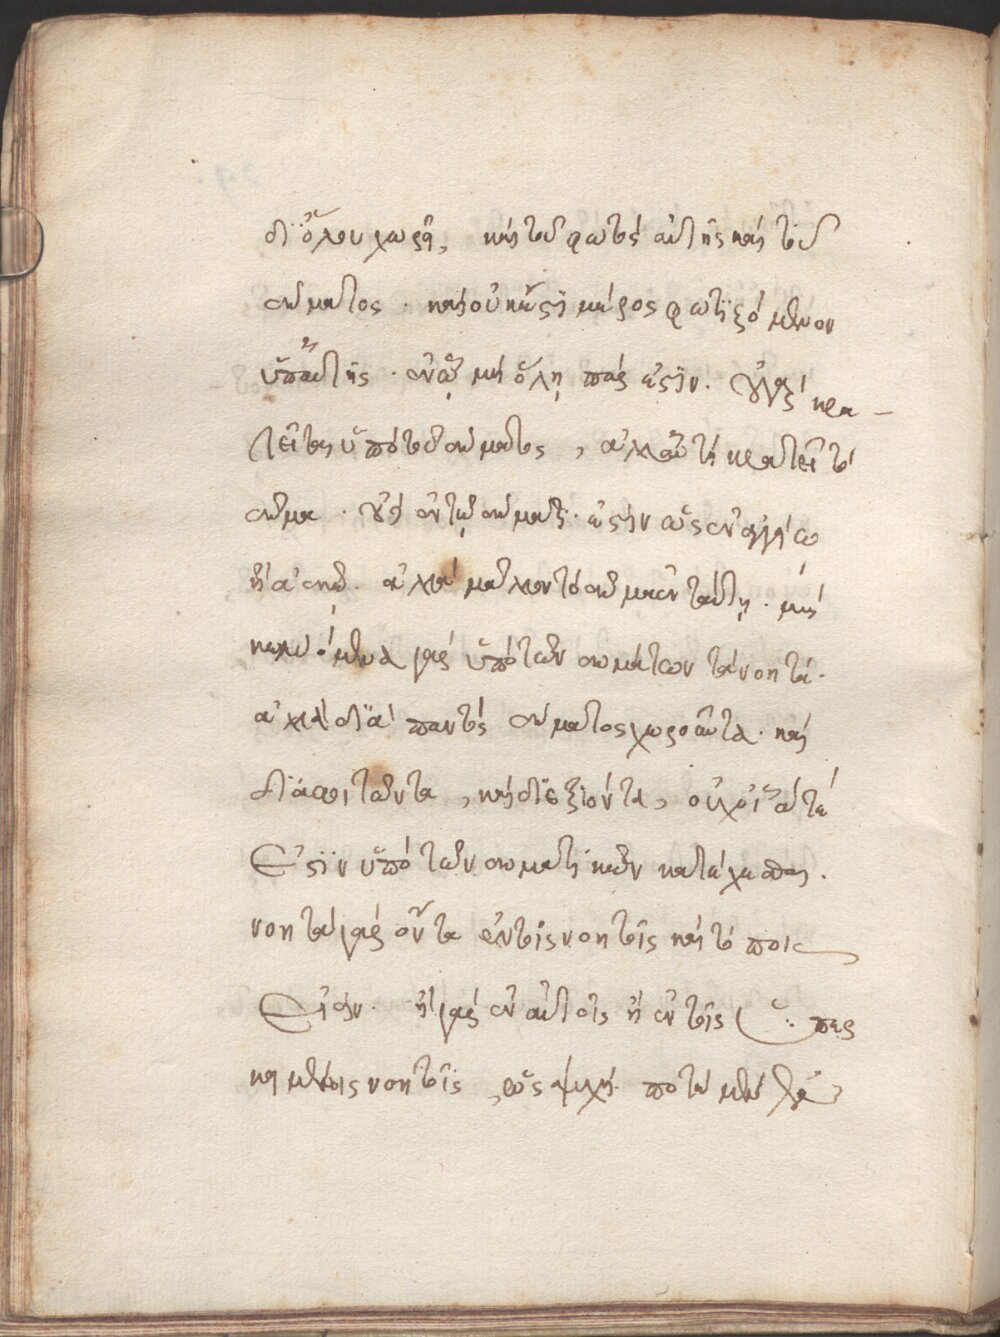 δι ὅλου χωρεῖ, καὶ τοῦ φωτὸς αὐτῆς καὶ τοῦ
σώματος. καὶ οὐκ ἔστι μέρος φωτιζόμενον
ὑπ' αὐτῆς. ἐν ᾧ μὴ ὅλη πάρεστιν. οὐ γὰρ κρα-
τεῖται ὑπὸ τοῦ σώματος, ἀλλ' αὐτὴ κρατεῖ τὸ
σῶμα. οὐδὲ ἐν τῷ σώματι ἐστὶν ὡς ἐν ἀγγείω
ἢ ἀσκῶ. ἀλλὰ μᾶλλον τὸ σῶμα ἐν ταύτῃ. μὴ
κωλυόμενα γὰρ ὑπὸ τῶν σωμάτων τὰ νοητά.
ἀλλὰ διὰ παντὸς σώματος χωροῦντα. καὶ
διαφοιτῶντα, καὶ διεξιόντα, οὐχ οἷά τέ
ἐστὶν ὑπὸ τῶν σωματικῶν κατέχεσθαι.
νοητὰ γὰρ ὄντα ἐν τοῖς νοητοῖς καὶ τόποις
ἐστίν. ἢ γὰρ ἐν αὐτοῖς ἢ ἐν τοῖς ὑπερ
κειμένοις νοητοῖς, ὡς ψυχὴ ποτὲ μὲν